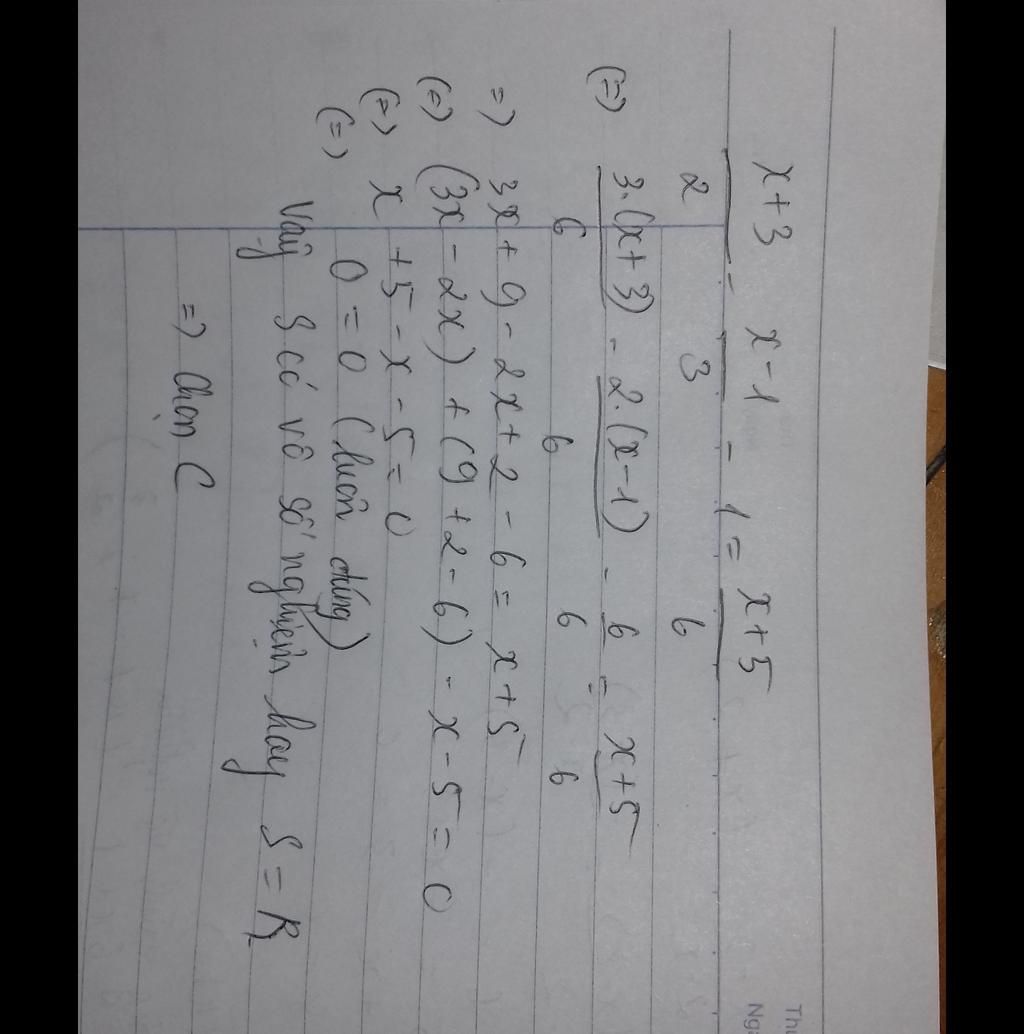 x+3 x-1 x+5
- - 1 =
2 3 6
(=) 3.(x+3) - 2.(x-1) - 6 = x+5
6 6 6 6
=) 3x + 9 - 2x + 2 - 6 = x + 5
(=) (3x - 2x) + (9 + 2 - 6) - x - 5 = 0
(=) x + 5 - x - 5 = 0
(=) 0 = 0 (luôn đúng)
Vậy S có vô số nghiệm hay S = R
=) Chọn C